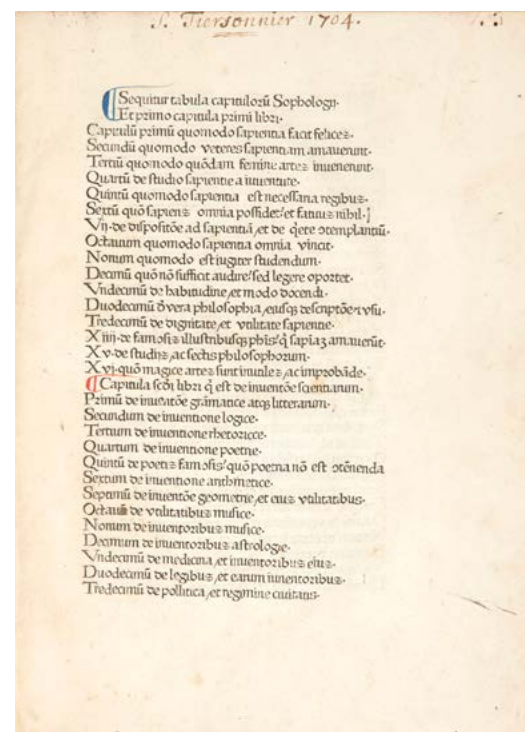 S. Tiersonnier 1704.
Sequitur tabula capitulorū Sophologij·
Et primo capitula primi libri·
Capitulū primū quomodo sapientia facit felices·
Secundū quomodo veteres sapientiam amauerunt·
Tertiū quomodo quędam femine artes inuenerunt·
Quartū de studio sapientie a iuuentute·
Quintū quomodo sapientia est necessaria regibus·
Sextū quō sapiens omnia possidet/et fatuus nihil·]
Vij·de dispositōe ad sapientiā,et de q̄ete ↄtemplantiū·
Octauum quomodo sapientia omnia vincit·
Nonum quomodo est iugiter studendum·
Decimū quō nō sufficit audire/sed legere oportet·
Vndecimū de habitudine,et modo docendi·
Duodecimū d̄ vera philosophia,eiusq; descriptōe ⁊ vsu·
Tredecimū de dignitate,et vtilitate sapientie·
Xiiij·de famosis illustribusq; phis/ q̄ sapiaȝ amauerūt·
Xv·de studijs,ac sectis philosophorum·
Xvj·quō magice artes sunt inutiles,ac improbāde·
Capitula scd̄i libri q̄ est de inuentōe scientiarum·
Primū de inuētōe grāmatice atq; litterarum·
Secundum de inuentione logice·
Tertium de inuentione rhetoricce·
Quartum de inuentione poetrie·
Quintū de poetis famosis/quō poetria nō est ↄtēnenda
Sextum de inuentione arithmetice·
Septimū de inuentōe geometrie,et eius vtilitatibus·
Octauū de vtilitatibus musice·
Nonum de inuentoribus musice·
Decimum de inuentoribus astrologie·
Vndecimū de medicina,et inuentoribus eius·
Duodecimū de legibus,et earum inuentoribus·
Tredecimū de pollitica,et regimine ciuitatis·